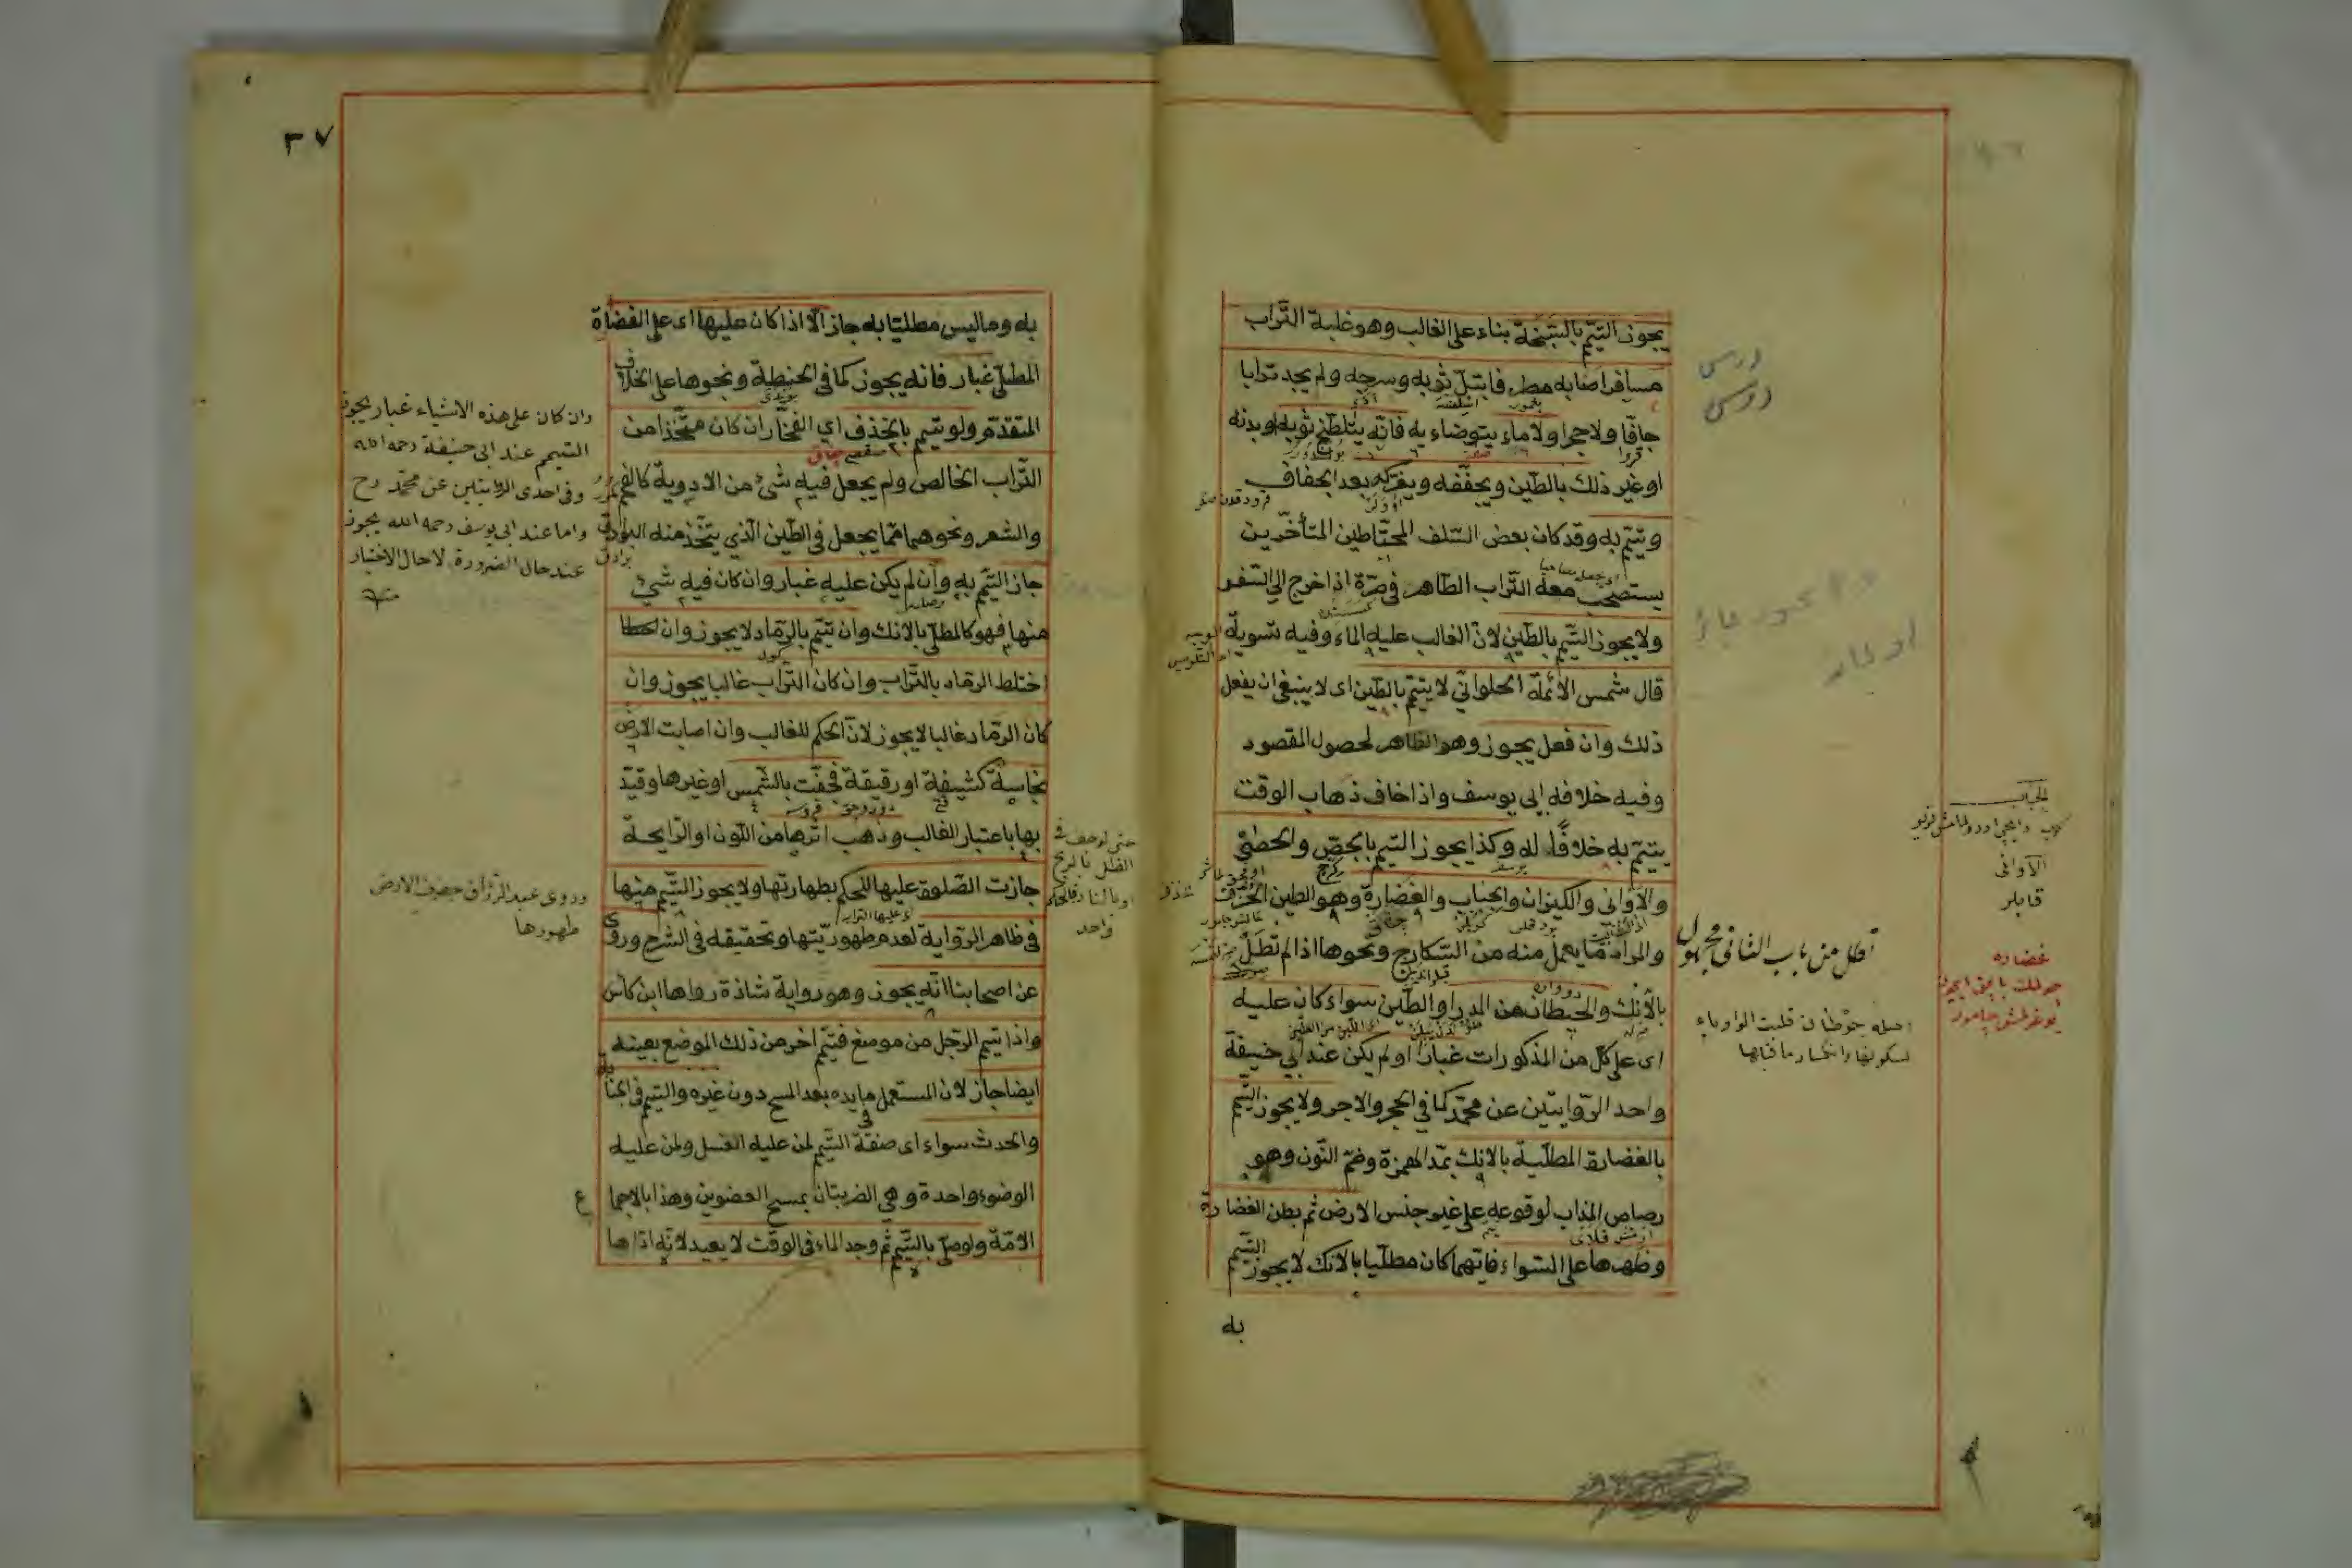 يجوز التيمّم بالسّبخة بناء على الغالب وهو غلبة التّراب
مسافر اصابه مطر فابتلّ ثوبه وسرجه ولم يجد ترابا
جافّا ولا حجرا ولا ماء يتوضاء به فانّه يتلطّخ ثوبه او بدنه
او غير ذلك بالطّين ويجفّفه ويفركه بعد الجفاف
ويتيمّم به وقد كان بعض السّلف المحتاطين المتأخّرين
يستصحب معه التّراب الطّاهر فى صرّة اذا خرج الى السّفر
ولا يجوز التيمّم بالطّين لانّ الغالب عليه الماء وفيه تسوية
قال شمس الأئمّة الحلوانّي لا يتيمّم بالطّين اى لا ينبغى ان يفعل
ذلك وان فعل يجوز وهو الظاهر لحصول المقصود
وفيه خلافه ابى يوسف واذا خاف ذهاب الوقت
يتيمّم به خلافًا له وكذا يجوز التيمّم بالجصّ والحصى
والاوانى والكيزان والجباب والغضارة وهو الطين الخزف
والمراد ما يعمل منه من السّكارج ونحوها اذا لم تطل
بالآنك والحيطان من المدر او الطّين سواء كان عليه
اى على كلّ من المذكورات غبار او لم يكن عند ابى حنيفة
واحد الرّوايتين عن محمّد كما فى الحجر والاجر ولا يجوز التيمّم
بالغضارة المطليّة بالانك بمدّ الهمزة وضمّ النّون وهو
رصاص المذاب لوقوعه على غير جنس الارض ثم بطن الغضارة
وظهرها على السّواء فايّهما كان مطليّا بالانك لا يجوز التيمّم
به
درسى
درسى
الجباب
الآوانى
قابلر
غضاره
اصله حوطان قلبت الواو ياء
لسكونها وانكسار ما قبلها
٣٧
به وما ليس مطليّا به جاز الّا اذا كان عليها اى على الغضاة
المطلىّ غبار فانه يجوز كما فى الحنطة ونحوها على الخلاف
المتقدّم ولو تيمّم بالخذف اي الفخّار ان كان متّخذا من
التّراب الخالص ولم يجعل فيه شئ من الادوية كالفحم
والشعر ونحوهما ممّا يجعل فى الطّين الّذي يتّخذ منه
جاز التيمّم به وان لم يكن عليه غبار وان كان فيه شئ
منها فهو كالمطلىّ بالانك وان تيمّم بالرّماد لا يجوز وان
اختلط الرماد بالتّراب وان كان التّراب غالبا يجوز وان
كان الرّماد غالبا لا يجوز لانّ الحكم للغالب وان اصابت الارض
نجاسة كشيفة او رقيقة فجفّت بالشّمس او غيرها وقيّد
بها باعتبار الغالب وذهب اثرها من اللّون او الرّايحة
جازت الصّلوة عليها للحكم بطهارتها ولا يجوز التيمّم منها
فى ظاهر الرّواية لعدم طهوريّتها وتحقيقه فى الشرح وروى
عن اصحابنا انّه يجوز وهو رواية شاذة رواها ابن كاس
واذا تيمّم الرّجل من موضع فتيمّم اخر من ذلك الموضع بعينه
ايضا جاز لان المستعمل ما بيده بعد المسح دون غيره والتيمّم فى الجنابة
والحدث سواء اى صفة التيمّم لمن عليه الغسل ولمن عليه
الوضوء واحدة وهى الضربتان بمسح العضوين وهذا بالاجماع
الامّة ولو صلّى بالتيمّم ثم وجد الماء فى الوقت لا يعيد لانّه اذاها
وان كان على هذه الاشياء غبار يجوز
التيمم عند ابى حنيفة رحمه الله
وفى احدى الروايتين عن محمّد رح
واما عند ابى يوسف رحمه الله يجوز
عند حال الضرورة لا حال الاختيار
وروى عبد الرزاق جفوف الارض
طهورها
حتى لو جف فى
الظل بالريح
او بالنار فالحكم
واحد